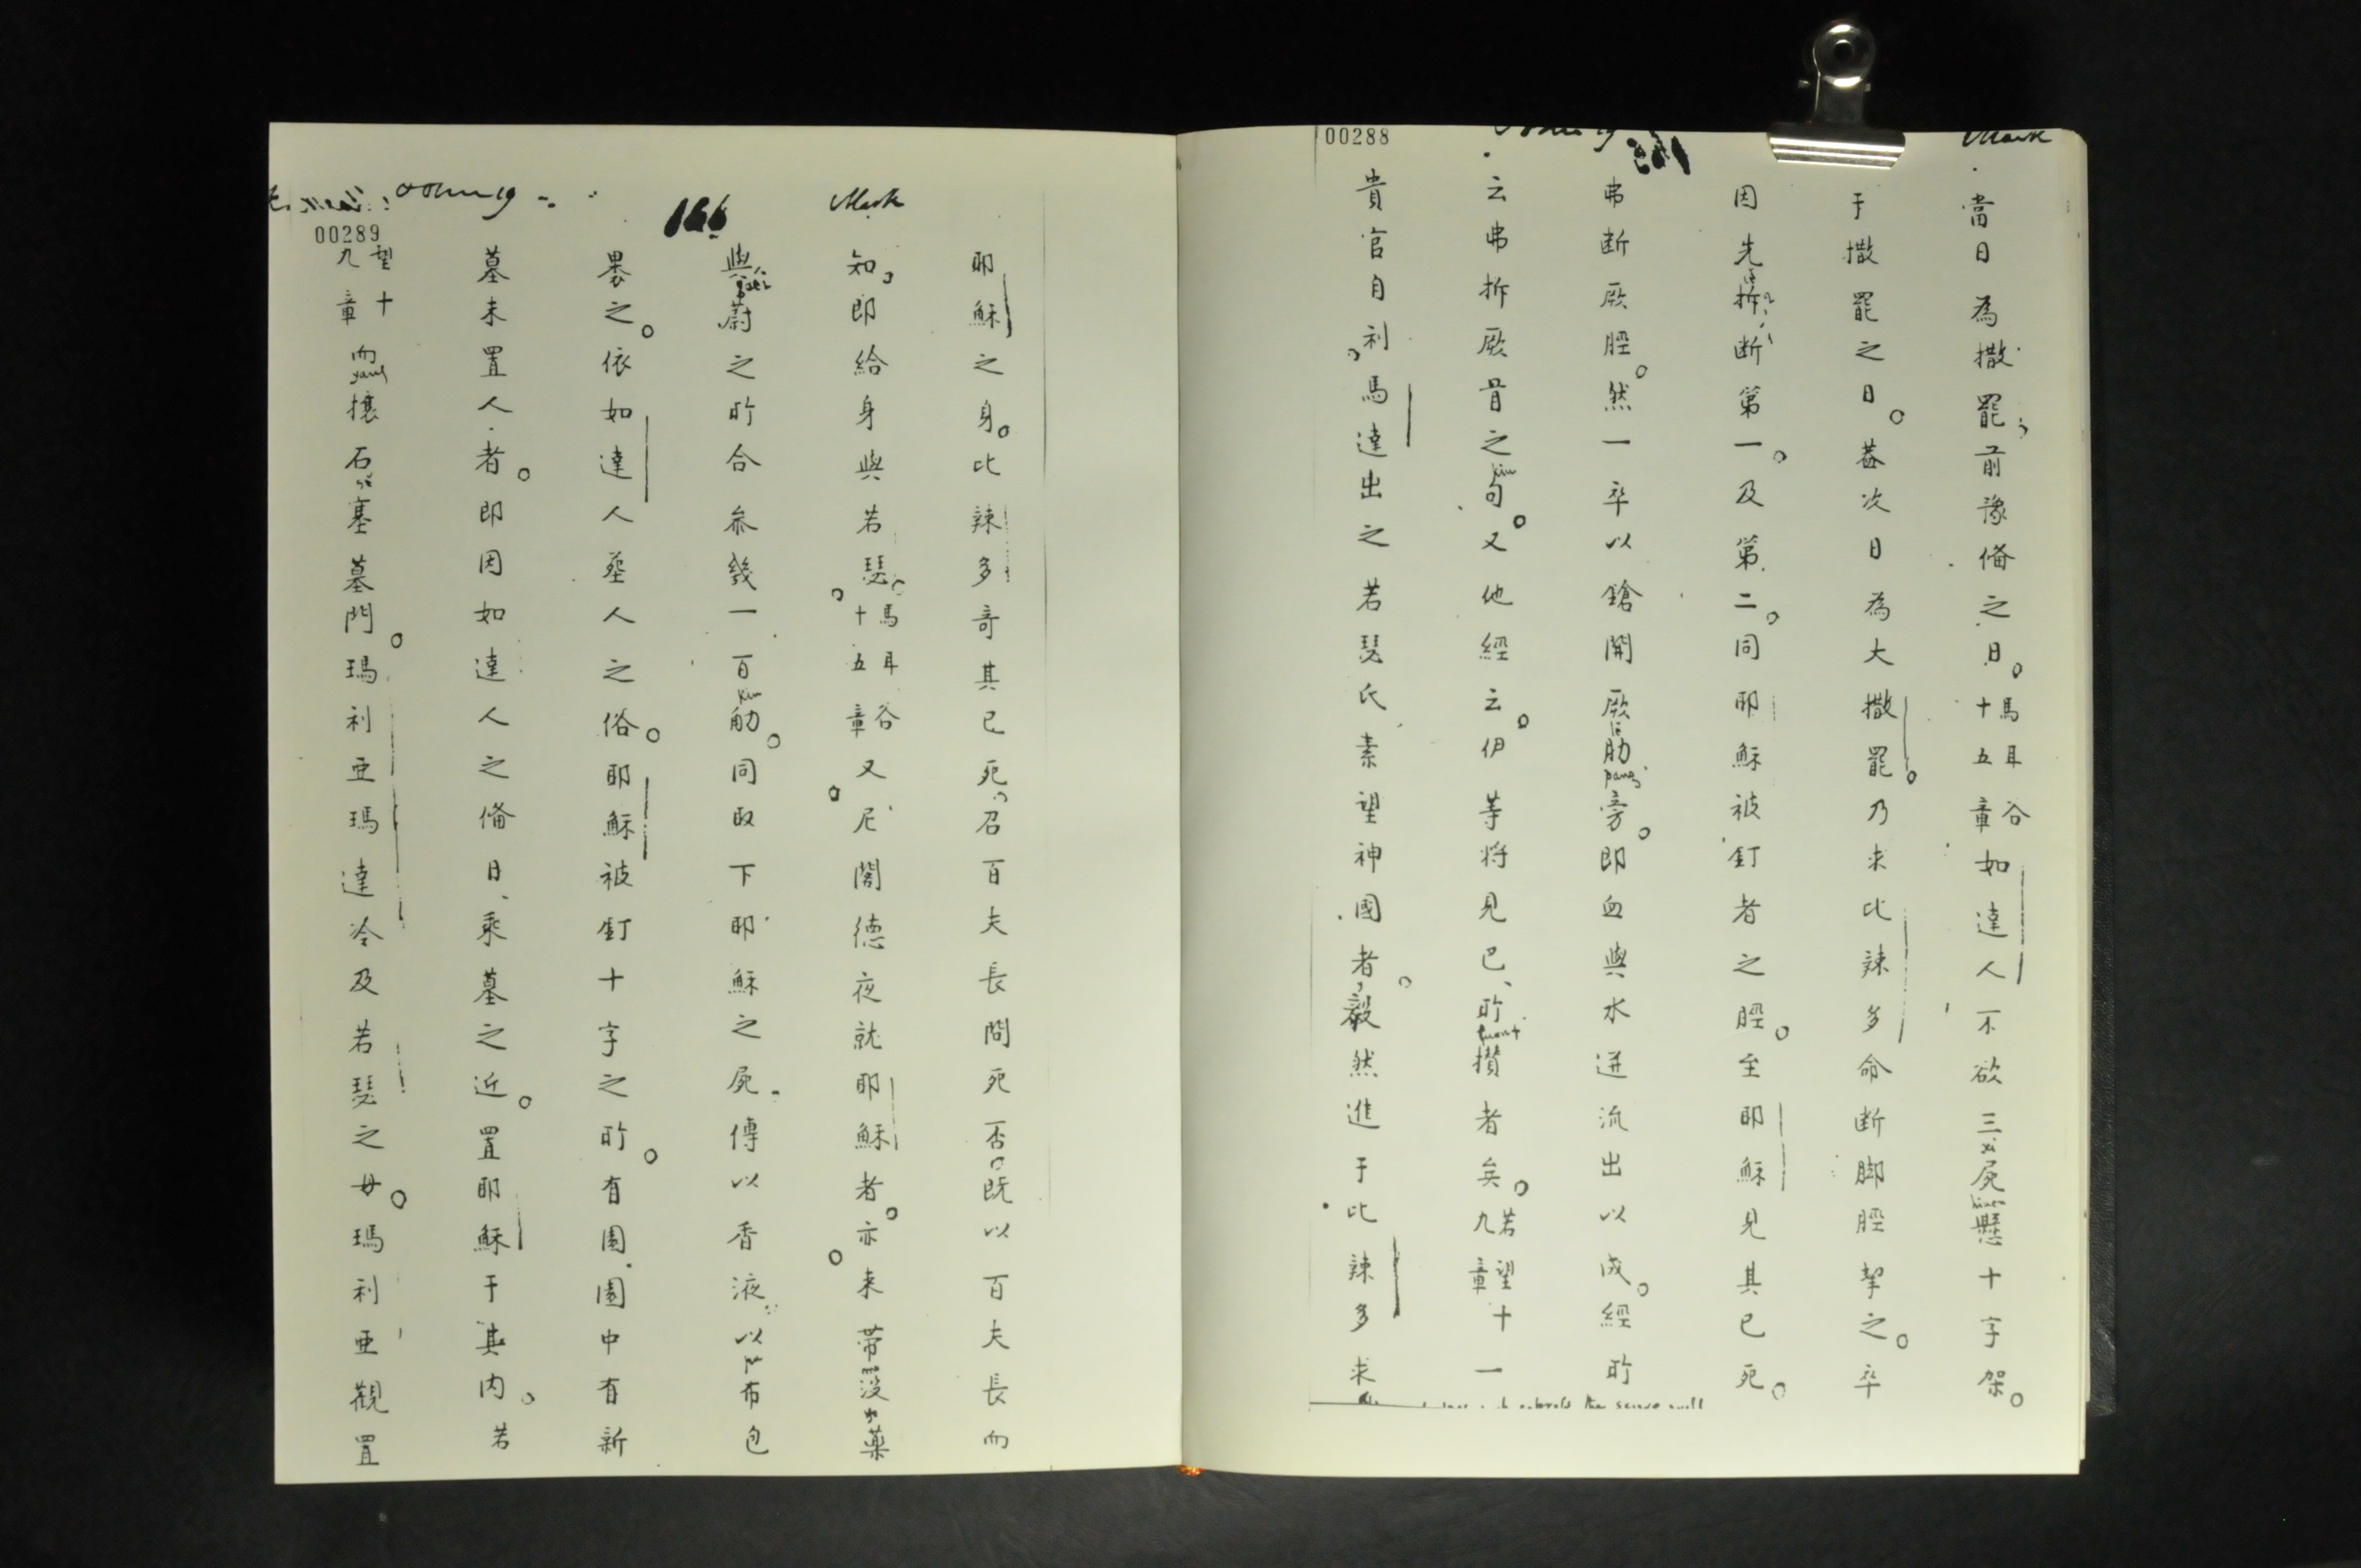 Mark
00288
當日為撒罷前豫俻之日。馬耳谷十五章如達人不欲三屍懸十字架。
于撒罷之日。葢次日為大撒罷。乃求比辣多命断脚脛挈之。卒
因先拆断第一。及第二。同耶穌被釘者之脛。至耶穌見其已死。
弗断厥脛。然一卒以鎗開厥肋旁。即血與水迸流出以成。經所
云弗拆厥骨之句。又他經云。伊等将見已、所攢者矣。若望十一九章
貴官自利馬達出之若瑟氏素望神國者。毅然進于比辣多求
Mark
166
John 19
00289
耶穌之身。比辣多竒其已死、召百夫長問死否。既以百夫長而
知、即給身與若瑟。馬耳谷十五章。又尼閣德夜就耶穌者。亦来带没藥
與蔚之所合叅幾一百觔。同取下耶穌之屍傳以香液以布包
褁之。依如達人塟人之俗。耶穌被釘十字之所。有園園中有新
墓未置人者。即因如達人之俻日、乘墓之近。置耶穌于其内。若
望十九章而攘石塞墓門。瑪利亜瑪達冷及若瑟之母。瑪利亜觀置